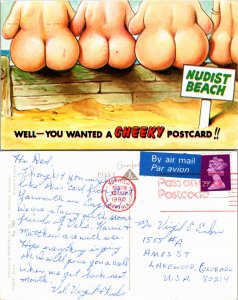 NUDIST
BEACH
WELL-YOU WANTED A CHEEKY POSTCARD!!
Hi Dad,
Thought you might
like this Card from
Yarmouth
we are staying with some
friends of Vals. Karrie &
Matthew are with us.
Hope everything is going
ok I will give you a call
when we get back next
month.
Val, Virgil & Kids
POST
By air mail
Par avion
1990
Passport
Postcode
Mr Virgil E.
1555
AMES ST
LAKEWOOD, COLORADO
U.S.A